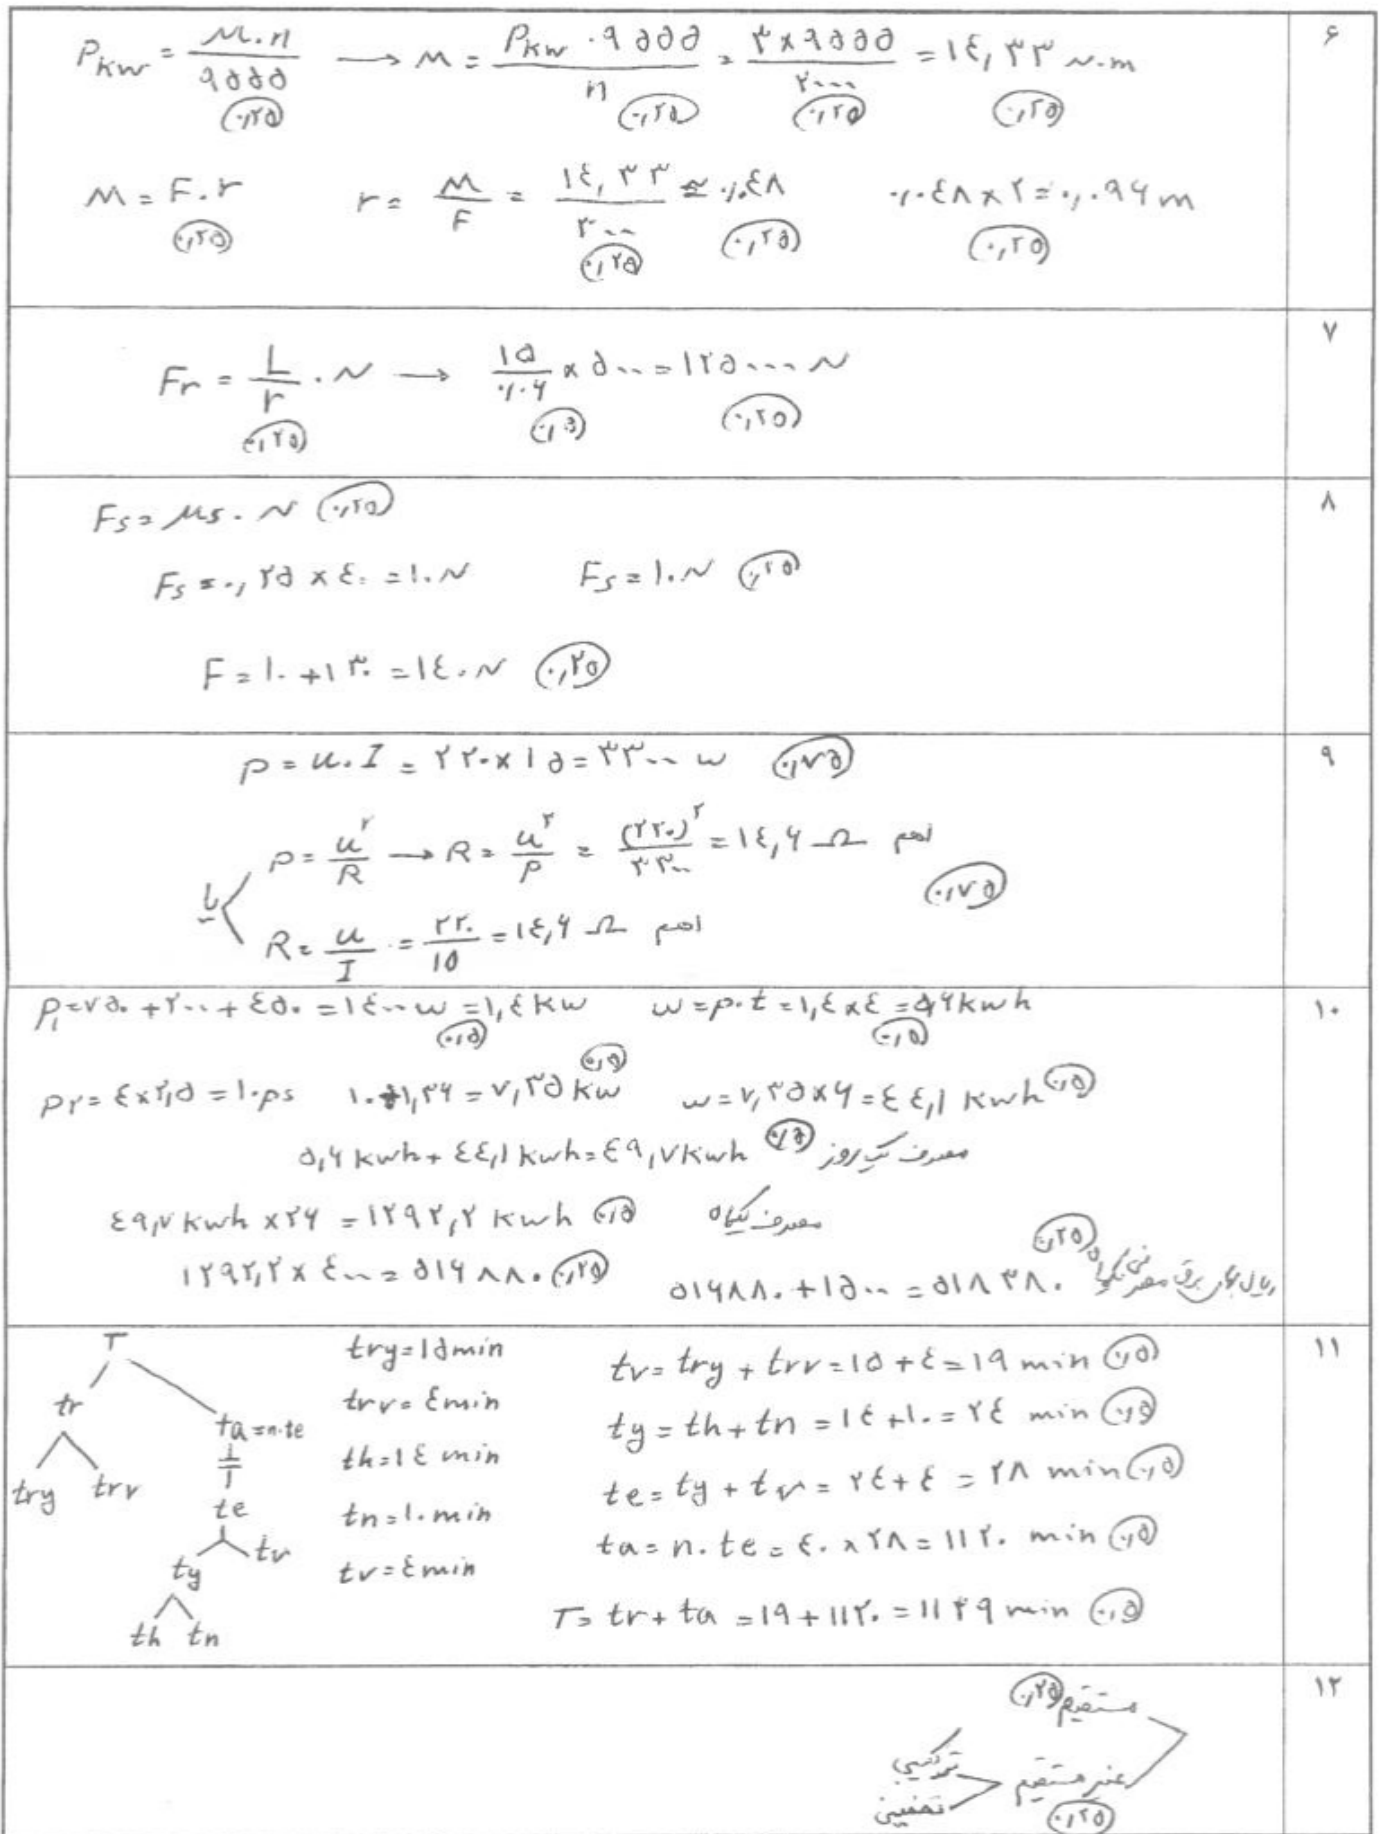 ۶
P_kw = M.n / ۹۵۵۵ → M = P_kw . ۹۵۵۵ / n = ۳×۹۵۵۵ / ۲۰۰۰ = ۱٤,۳۳ N.m
(۰,۲۵) (۰,۲۵) (۰,۲۵) (۰,۲۵)
M = F.r r = M / F = ۱٤,۳۳ / ۳۰۰ ≃ ۰,۰٤۸ ۰,۰٤۸×۲=۰,۰۹۶ m
(۰,۲۵) (۰,۲۵) (۰,۲۵) (۰,۲۵)
۷
Fr = L / r . N → ۱۵ / ۰,۰۶ × ۵۰۰ = ۱۲۵۰۰۰ N
(۰,۲۵) (۰,۵) (۰,۲۵)
۸
Fs = Ms . N (۰,۲۵)
Fs = ۰,۲۵ × ٤۰ = ۱۰ N Fs = ۱۰ N (۰,۲۵)
F = ۱۰ + ۱۳۰ = ۱٤۰ N (۰,۲۵)
۹
P = u.I = ۲۲۰×۱۵ = ۳۳۰۰ w (۰,۷۵)
یا
P = u^۲ / R → R = u^۲ / P = (۲۲۰)^۲ / ۳۳۰۰ = ۱٤,۶ Ω اهم
(۰,۷۵)
R = u / I = ۲۲۰ / ۱۵ = ۱٤,۶ Ω اهم
۱۰
P₁=۷۵۰ + ۲۰۰ + ٤۵۰ = ۱٤۰۰ w = ۱,٤ kw w = p.t = ۱,٤×٤ = ۵,۶ kwh
(۰,۵) (۰,۵)
P۲ = ٤×۲,۵ = ۱۰ ps ۱۰ ÷ ۱,۳۶ = ۷,۳۵ kw (۰,۵) w = ۷,۳۵×۶ = ٤٤,۱ kwh (۰,۵)
۵,۶ kwh + ٤٤,۱ kwh = ٤۹,۷ kwh (۰,۵) مصرف یک روز
٤۹,۷ kwh ×۲۶ = ۱۲۹۲,۲ kwh (۰,۵) مصرف یکماه
۱۲۹۲,۲ × ٤۰۰ = ۵۱۶۸۸۰ (۰,۲۵) ۵۱۶۸۸۰ + ۱۵۰۰ = ۵۱۸۳۸۰ (۰,۲۵) ریال بهای برق مصرفی
۱۱
T
tr
ta = n.te
try trv
te
ty tv
th tn
try = ۱۵ min
trv = ٤ min
th = ۱٤ min
tn = ۱۰ min
tv = ٤ min
tr = try + trv = ۱۵ + ٤ = ۱۹ min (۰,۵)
ty = th + tn = ۱٤ + ۱۰ = ۲٤ min (۰,۵)
te = ty + tv = ۲٤ + ٤ = ۲۸ min (۰,۵)
ta = n.te = ٤۰ × ۲۸ = ۱۱۲۰ min (۰,۵)
T = tr + ta = ۱۹ + ۱۱۲۰ = ۱۱۳۹ min (۰,۵)
۱۲
مستقیم (۰,۲۵)
غیر مستقیم
(۰,۲۵)
ترکیبی
تخمینی